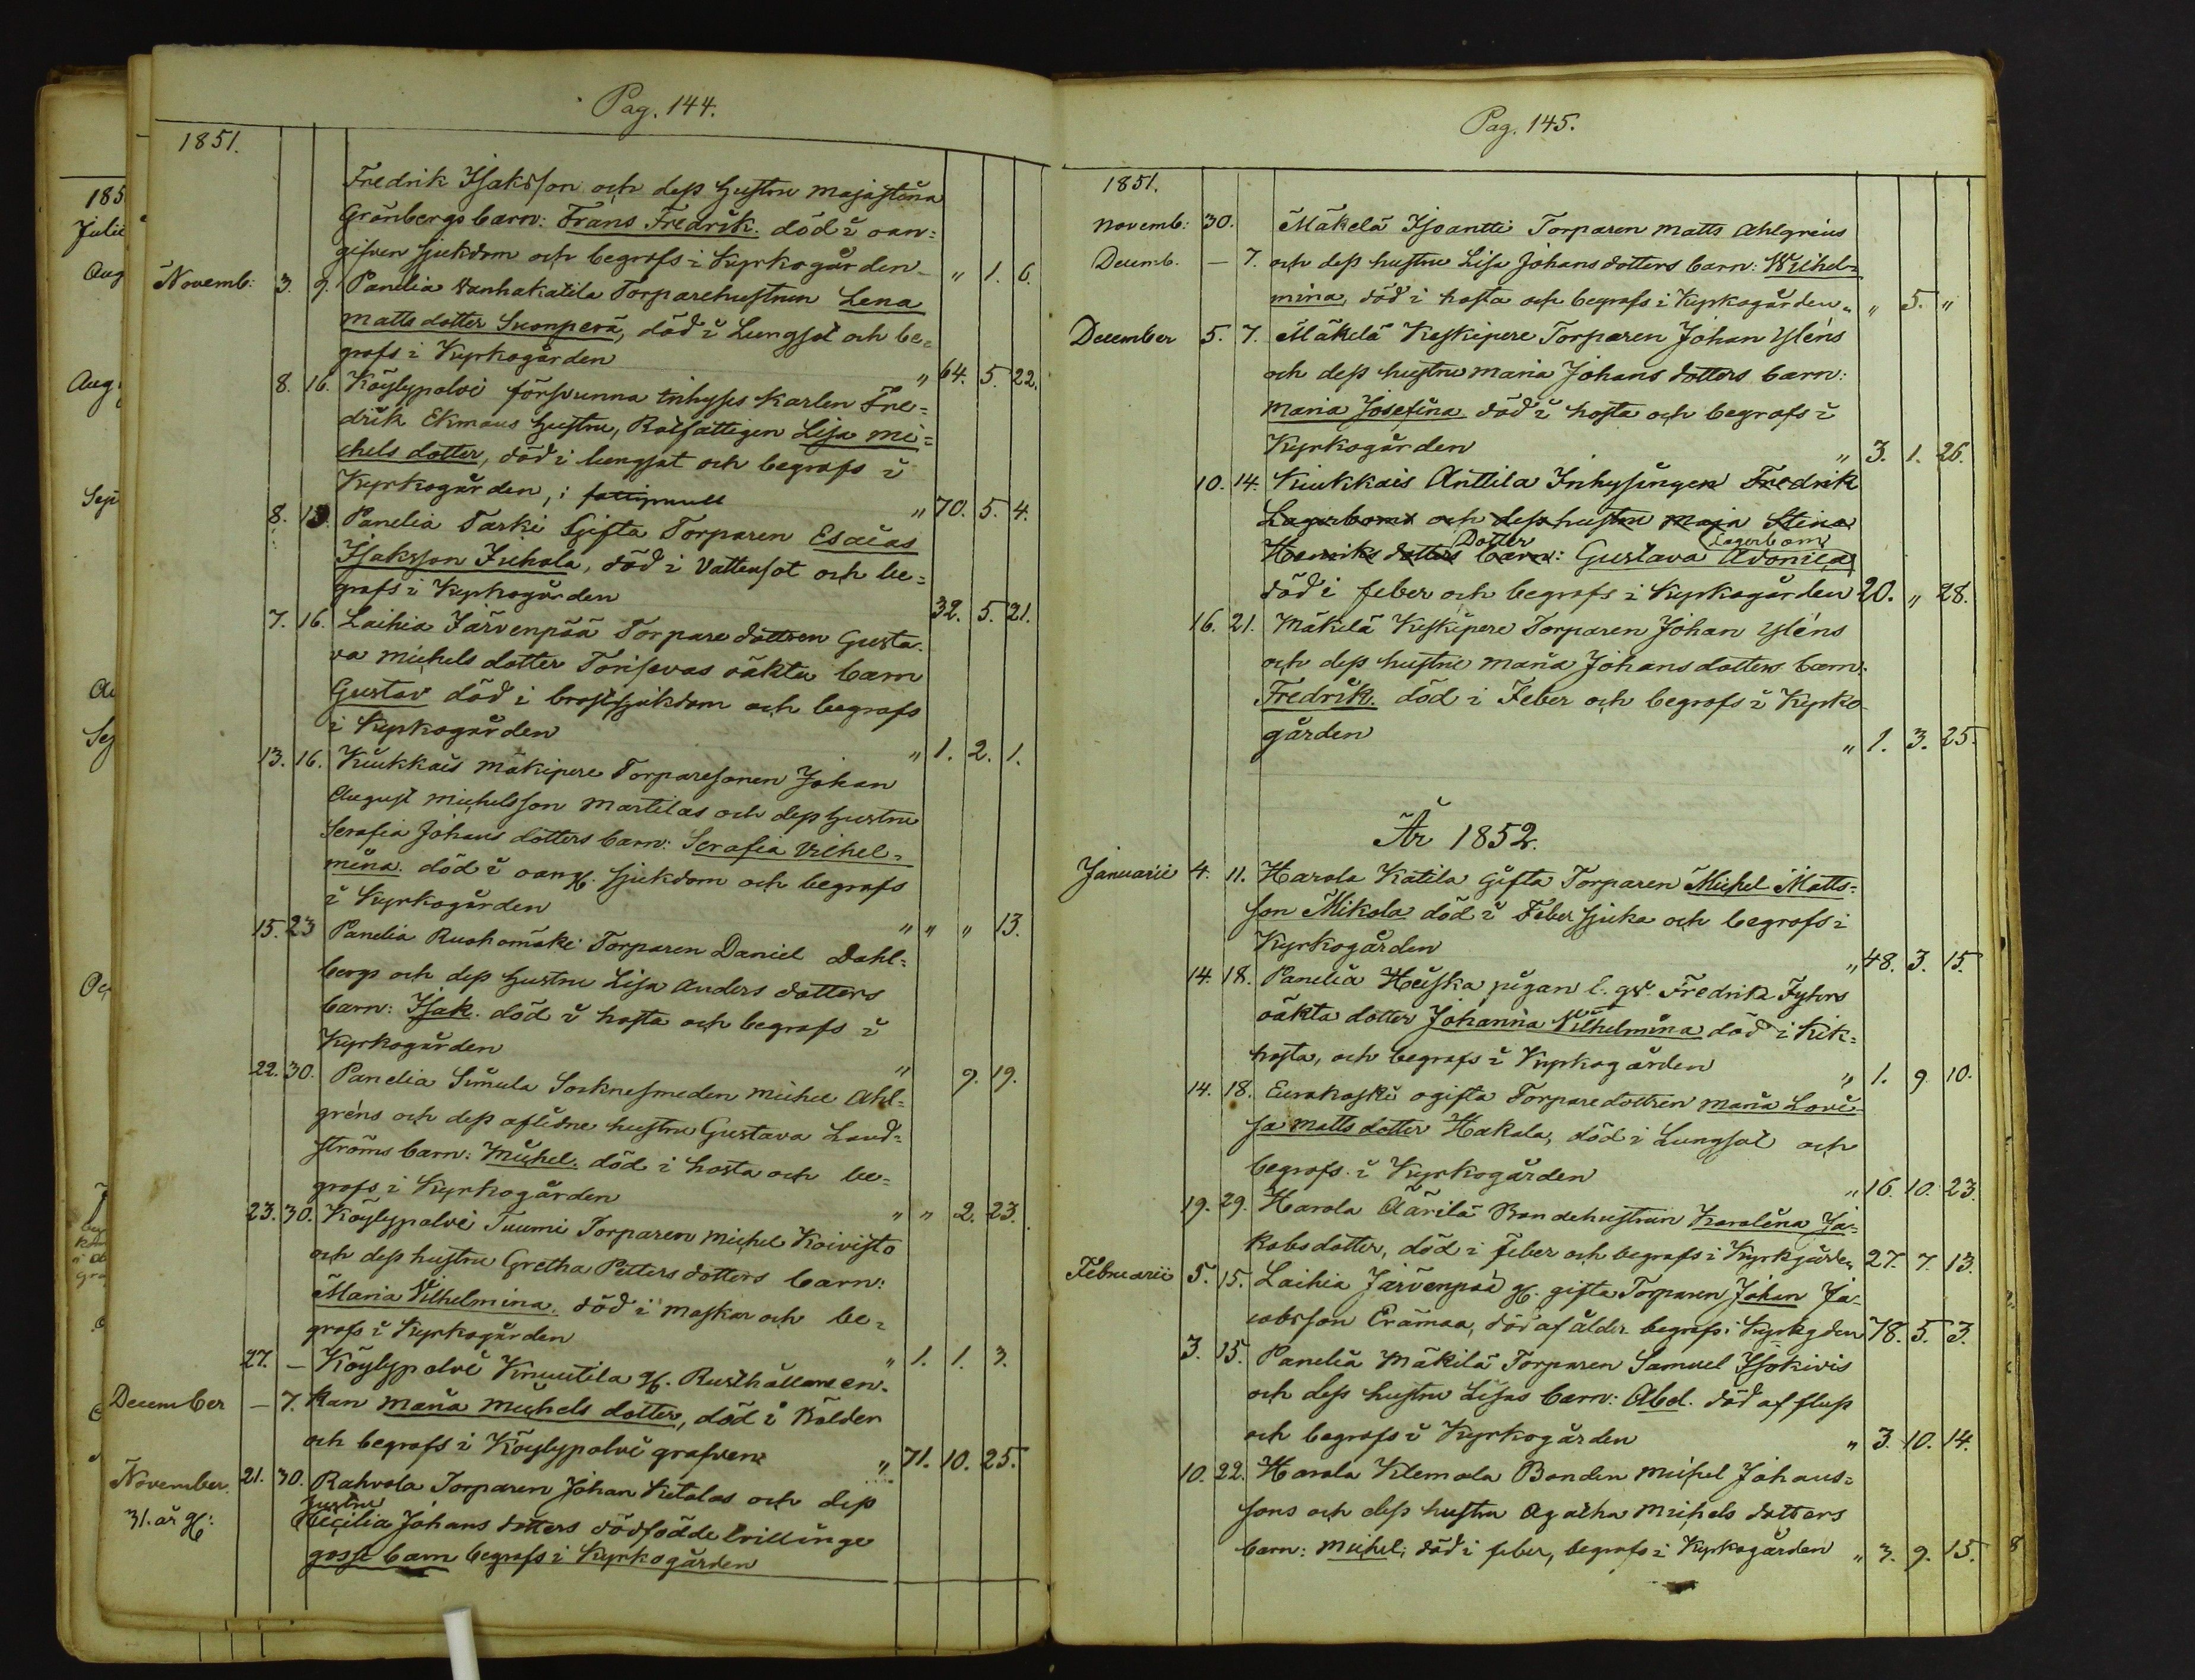 Pag. 144.
1851.
Fredrik Isaksson och dess hustru Majastina
Grönbergs barn: Frans Fredrik. död i oan=
gifven sjukdom och begrafs i Kyrkogården " 1. 6.
Novemb: 3. 9. Panelia Vanhakatila Torparehustrun Lena
Mattsdotter Suonperä, död i Lungsot och be=
grafs i Kyrkogården " 64. 5. 22.
8. 16. Köylypolvi försvunna inhyses karlen Fre=
drik Ekmans hustru, Rotfattigen Lisa Mi=
chels dotter, död i lungsot och begrafs i
Kyrkogården, i " 70. 5. 4.
8. Panelia Tarki Gifta Torparen Esaias
Isaksson Juhola, död i Vattusot och be=
grafs i Kyrkogården 32. 5. 21.
7. 16. Laihia Järvenpää Torpare dottren Gusta=
va Michels dotter Torisevas oäkta barn
Gustav död i bröstsjukdom och begrafs
i Kyrkogården " 1. 2. 1.
13. 16. Kiukkais Mäkipere Torparesonen Johan
August Michelsson Martilas och dess hustru
Serafia Johans dotters barn: Serafia Vilhel=
mina. död i oang. sjukdom och begrafs
i Kyrkogården " " " 13.
15. 23 Panelia Ruohomäki Torparen Daniel Dahl=
bergs och dess hustru Lisa Anders dotters
barn: Isak. död i hosta och begrafs i
Kyrkogården " 9. 19.
22. 30. Panelia Simula Socknesmeden Michel Ahl=
gréns och dess aflidne hustru Gustava Lind=
ströms barn: Michel. död i hosta och be=
grafs i Kyrkogården " " 2. 23.
23. 30. Köylypolvi Tuumi Torparen Michel Koivisto
och dess hustru Gretha Petters dotters barn:
Maria Vilhelmina. död i maskar och be=
grafs i Kyrkogården " 1. 1. 3.
27. — Köylypolvi Knuutila Rusthållareen=
December — 7. kan Maria Michels dotter, död i Bölder
och begrafs i Köylypolvi grafven " 71. 10. 25.
November. 21. 30. Rahvola Torparen Johan Kitalas och dess
hustru
31. år g: Cecilia Johans dotters dödfödde trillinge
gosse barn begrafs i Kyrkogården
Pag. 145.
1851.
Novemb: 30. Mäkelä Isoantti Torparen Matts Ahlgréns
Decemb. — 7. och dess hustru Lisa Johansdotters barn: Wilhel=
mina, död i hosta och begrafs i Kyrkogården " " 5. "
December 5. 7. Mäkelä Keskipere Torparen Johan Ylléns
och dess hustru Maria Johans dotters barn:
Maria Josefina död i hosta och begrafs i
Kyrkogården " 3. 1. 26.
10. 14. Kiukkais Anttila Inhysingen Fredrik
Lagerboms och dess hustru Maja Stina
Dotter Lagerbom
Henriks dotters barn: Gustava Adonica
död i feber och begrafs i Kyrkogården 20. " 28.
16. 21. Mäkelä Keskipere Torparen Johan Ylléns
och dess hustru Maria Johans dotters barn:
Fredrik. död i Feber och begrafs i Kyrko=
gården " 1. 3. 25.
År 1852.
Januarii 4. 11. Harola Katila Gifta Torparen Michel Matts=
son Mikola död i Feber sjuka och begrafs i
Kyrkogården " 48. 3. 15.
14. 18. Panelia Heiska pigan Fredrika
oäkta dotter Johanna Vilhelmina död i Kik=
hosta, och begrafs i Kyrkogården " 1. 9. 10.
14. 18. Eurakoski ogifta Torpare dottren Maria Lovi=
sa Matts dotter Hakala, död i Lungsot och
begrafs i Kyrkogården " 16. 10. 23.
19. 29. Harola Äärilä Bondehustrun Karolina Ja=
kobsdotter, död i feber och begrafs i Kyrkgården 27. 7. 13.
Februarii 5. 15. Laihia Järvenpää gifta Torparen Johan Ja=
cobsson Erämaa, död af ålder begrafs i Kyrkgden 78. 5. 3.
3. 15. Panelia Mäkilä Torparen Samuel Isokivis
och dess hustru Lisas barn: Abel. död af fluss
och begrafs i Kyrkogården " 3. 10. 14.
10. 22. Harola Klemola Bonden Michel Johans=
sons och dess hustru Agatha Michels dotters
barn: Michel; död i feber, begrafs i Kyrkogården " 3. 9. 15.